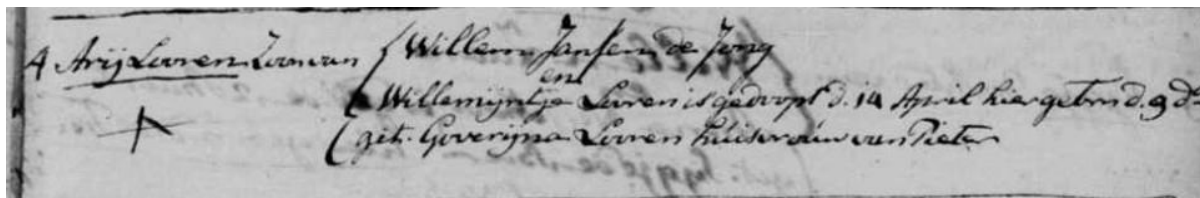 4 Arij Looren Zoon van Willem Jansen de Jong
en
Willemijntje Looren is gedoopt d. 14 April hier geb: d. 9 d°
get. Goverijna Looren huisvrouw van Pieter